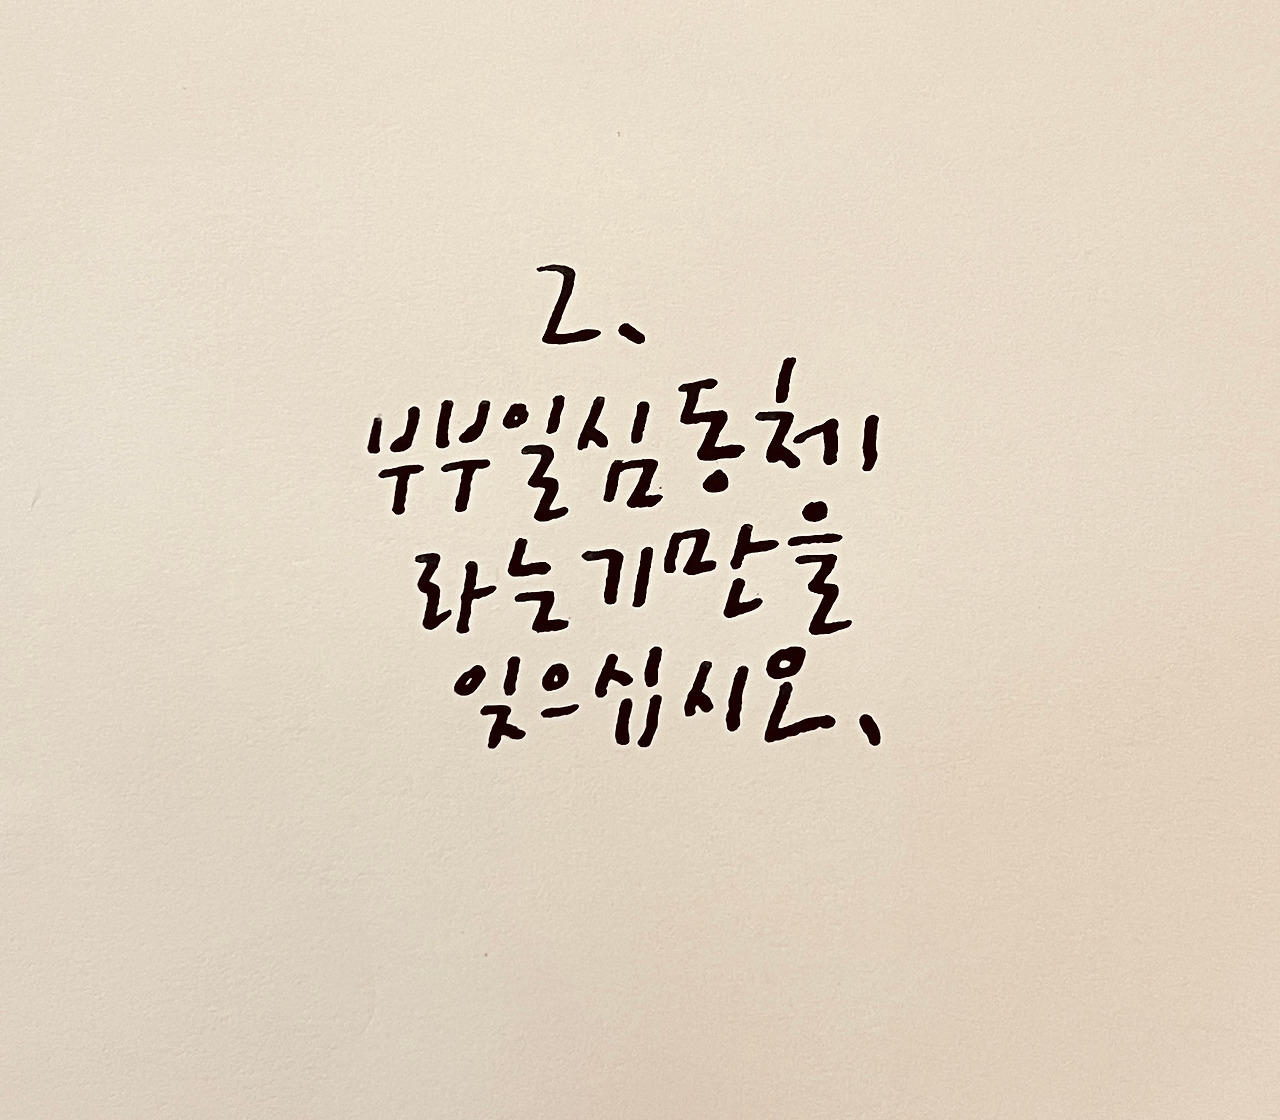 2.
부부일심동체
라는 기만을
잊으십시오.